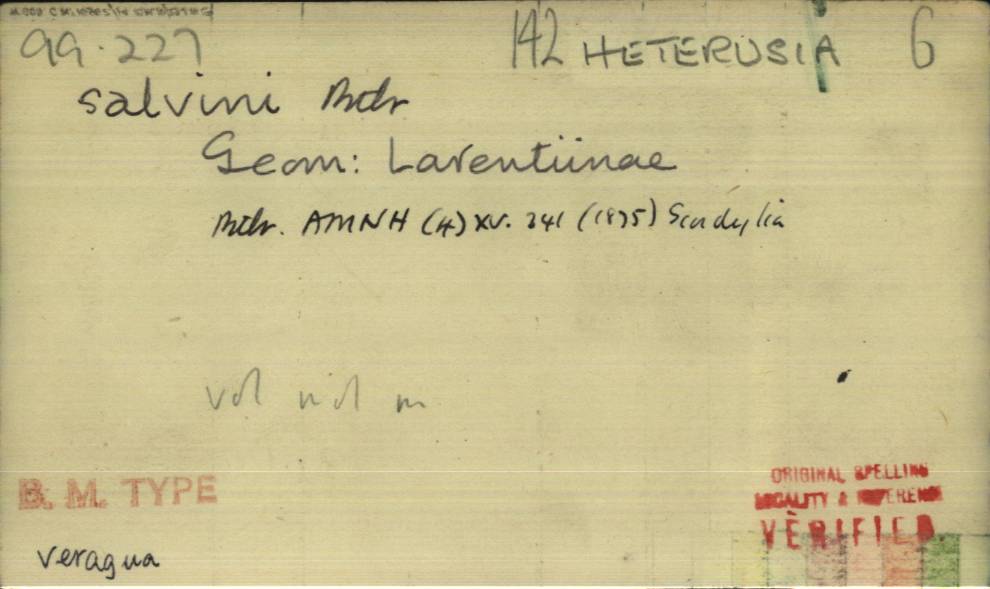 99.227 142 HETERUSIA G
salvini Btlr
Geom: Larentiinae
Btlr. AMNH (4) XV. 341 (1875) Scordylia
vol
B. M. TYPE
ORIGINAL SPELLING
LOCALITY & REFERENCE
VERIFIED
veragua